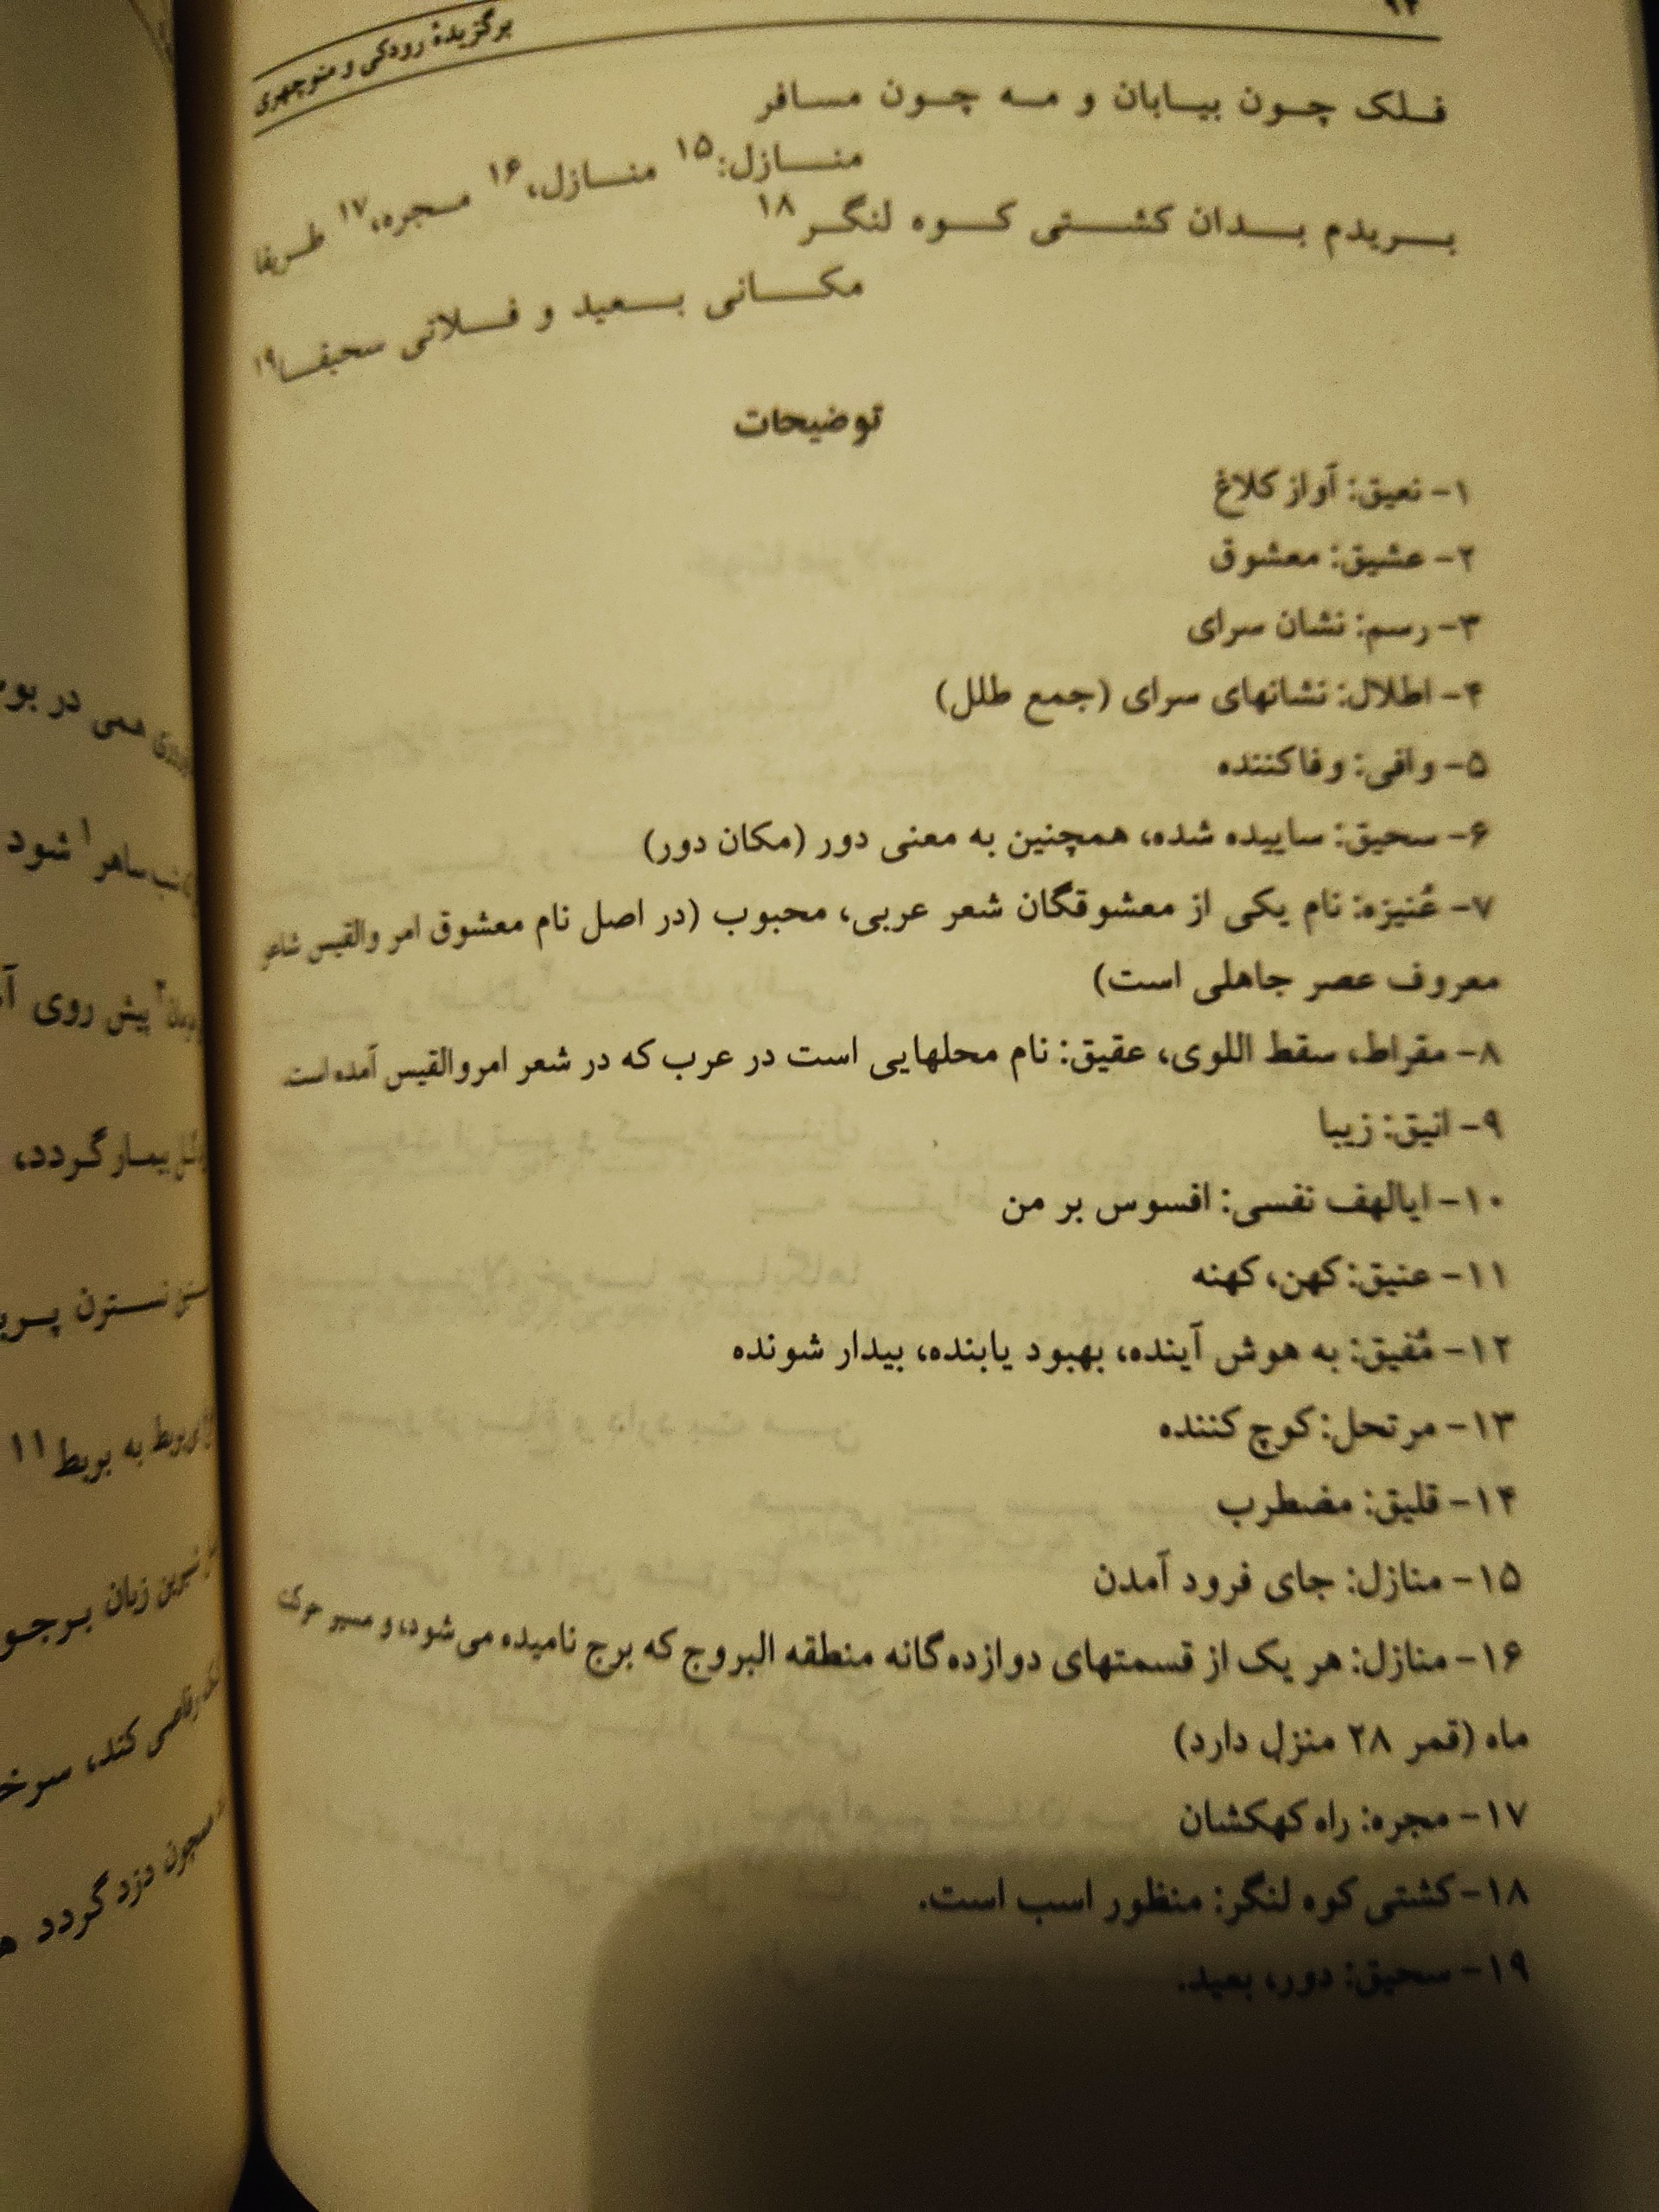 برگزیدهٔ رودکی و منوچهری
فلک چون بیابان و مه چون مسافر
منازل:۱۵ منازل،۱۶ مجره،۱۷ طریقا
بریدم بدان کشتی کوه لنگر۱۸
مکانی بعید و فلاتی سحیقا۱۹
توضیحات
۱- نعیق: آواز کلاغ
۲- عشیق: معشوق
۳- رسم: نشان سرای
۴- اطلال: نشانهای سرای (جمع طلل)
۵- وافی: وفاکننده
۶- سحیق: ساییده شده، همچنین به معنی دور (مکان دور)
۷- عُنیزه: نام یکی از معشوقگان شعر عربی، محبوب (در اصل نام معشوق امر والقیس شاعر
معروف عصر جاهلی است)
۸- مقراط، سقط اللوی، عقیق: نام محلهایی است در عرب که در شعر امروالقیس آمده است.
۹- انیق: زیبا
۱۰- ایالهف نفسی: افسوس بر من
۱۱- عنیق: کهن، کهنه
۱۲- مُفیق: به هوش آینده، بهبود یابنده، بیدار شونده
۱۳- مرتحل: کوچ کننده
۱۴- قلیق: مضطرب
۱۵- منازل: جای فرود آمدن
۱۶- منازل: هر یک از قسمتهای دوازده گانه منطقه البروج که برج نامیده می‌شود، و مسیر حرکت
ماه (قمر ۲۸ منزل دارد)
۱۷- مجره: راه کهکشان
۱۸- کشتی کوه لنگر: منظور اسب است.
۱۹- سحیق: دور، بعید.
همی در
ساهر۱ شود
پیش روی
بیمار گردد،
نسترن
بربط به بربط۱۱
شیرین زبان
رقاصی کند،
دزد گردد